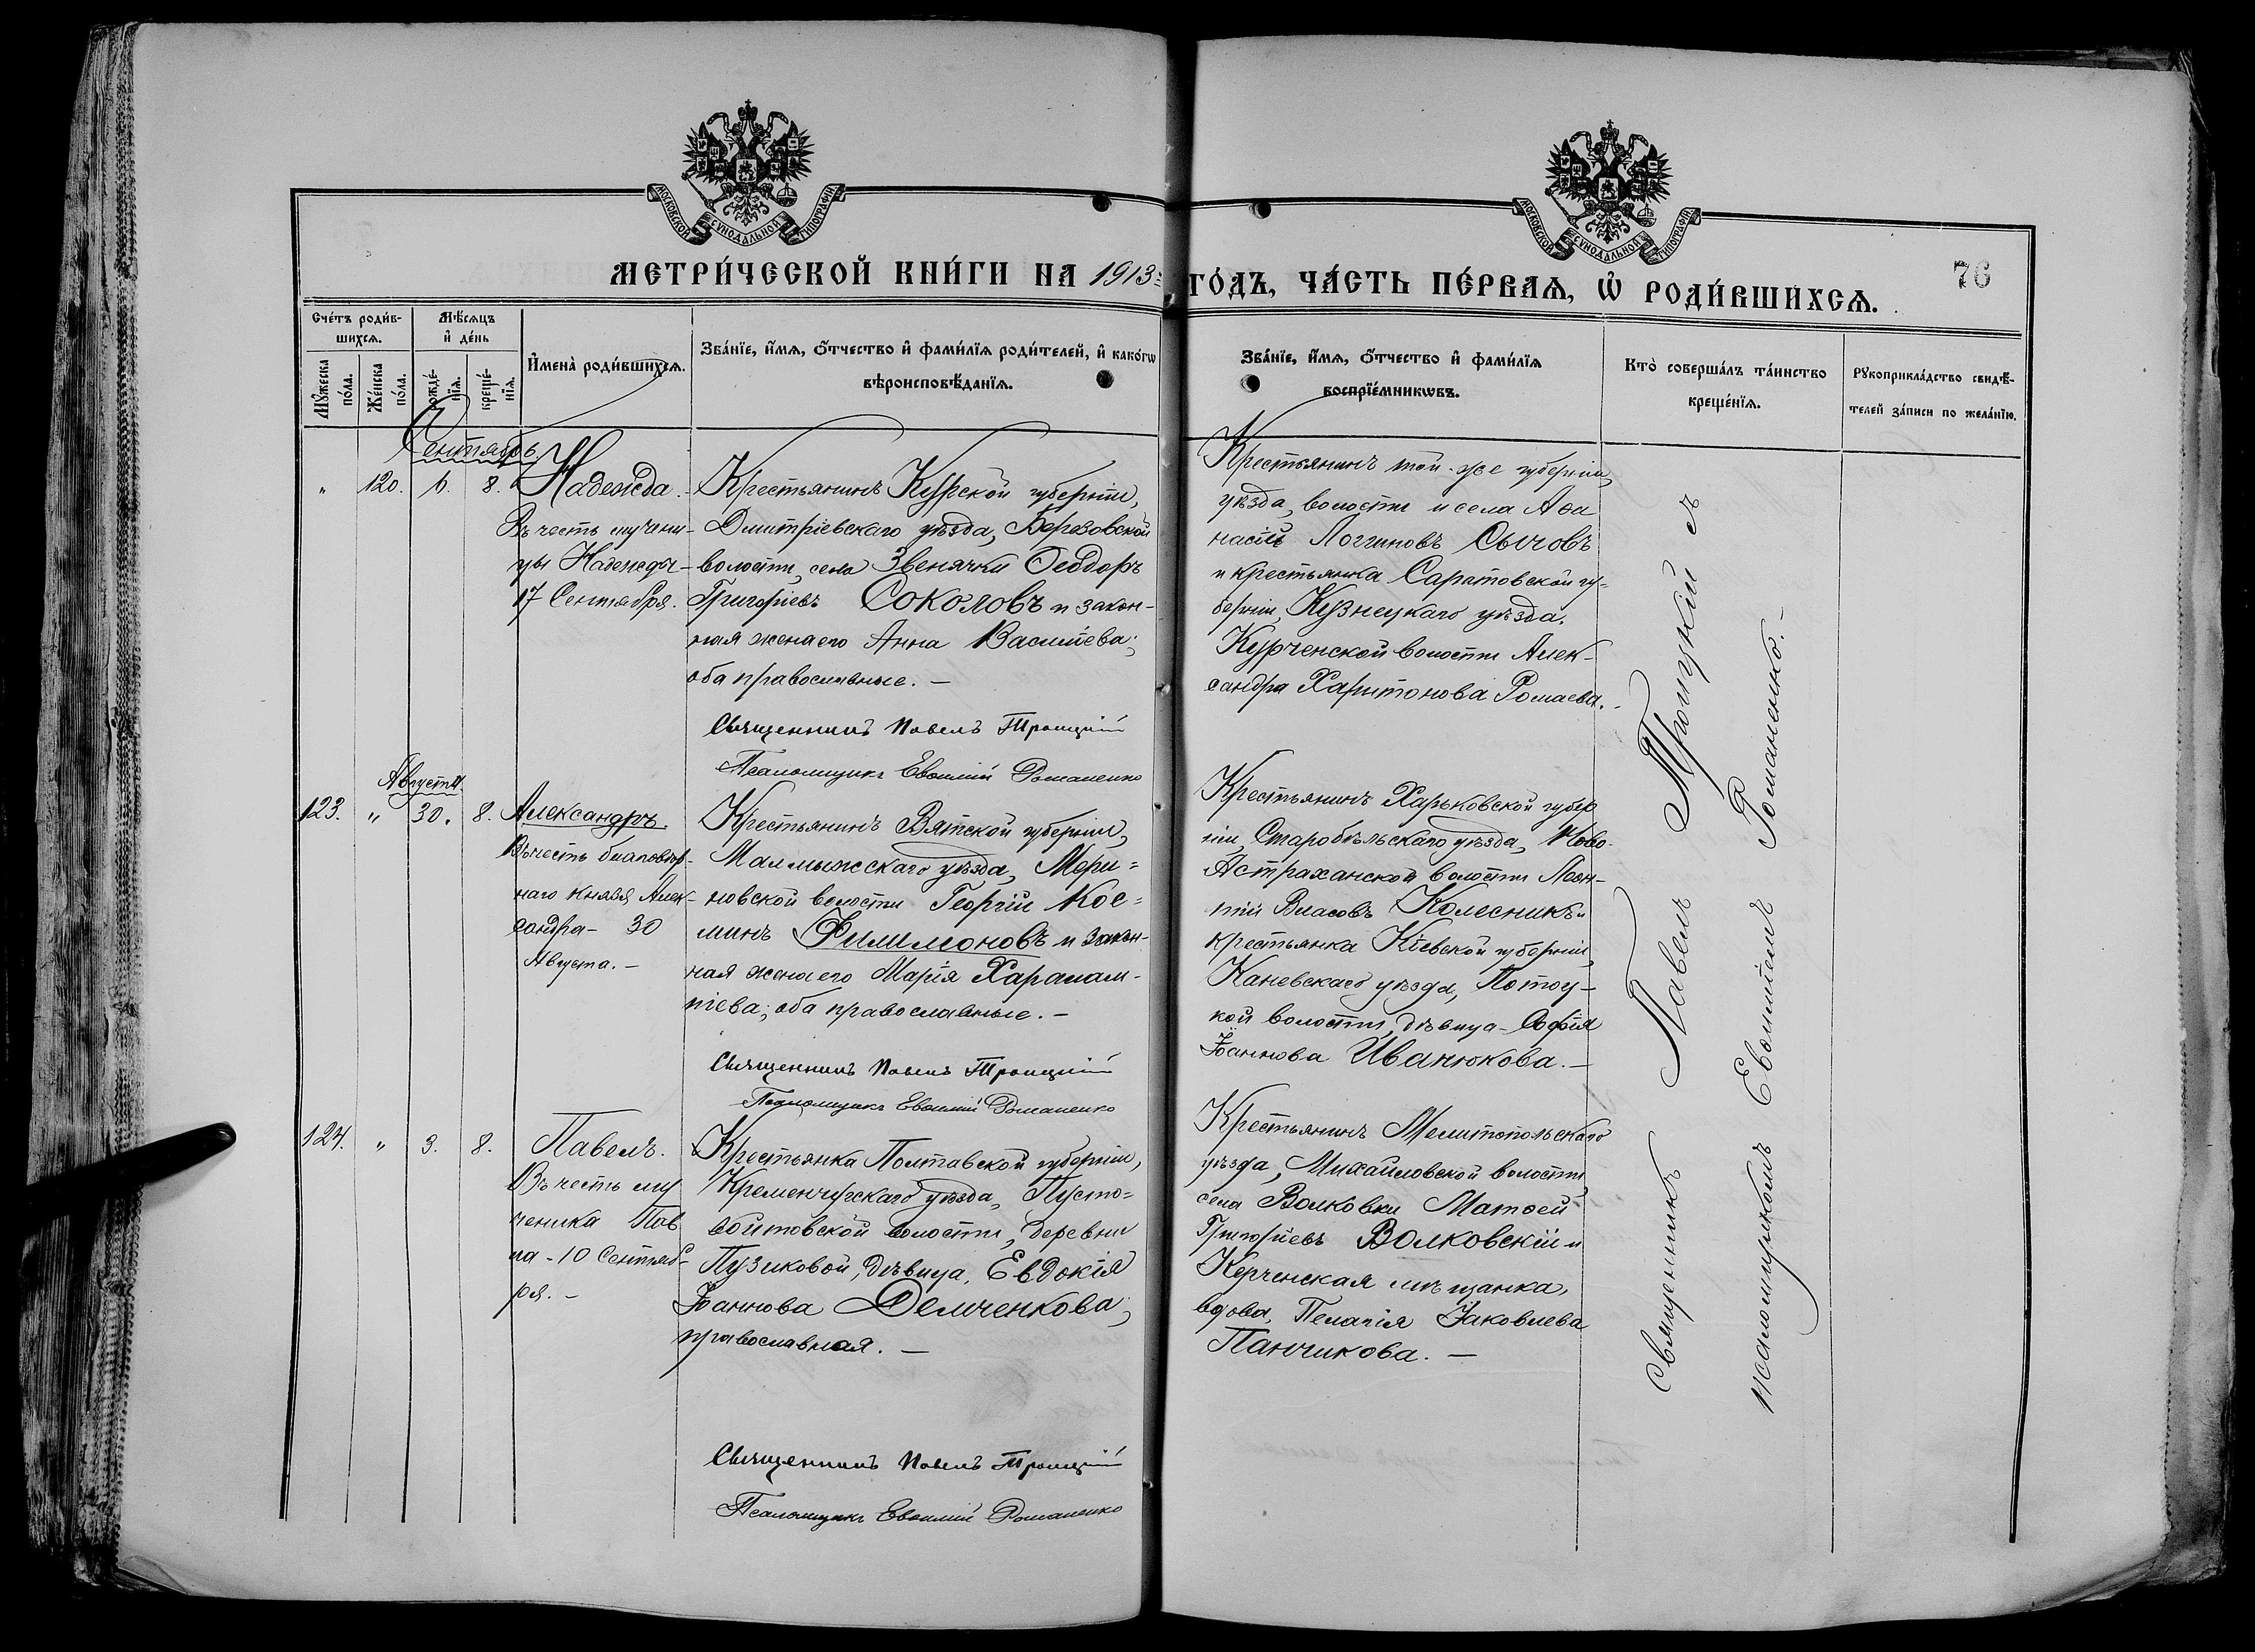 МОСКОВСКОЙ СѴНОДАЛЬНОЙ ТИПОГРАФІИ
МОСКОВСКОЙ СѴНОДАЛЬНОЙ ТИПОГРАФІИ
МЕТРИ́ЧЕСКОЙ КНИ́ГИ НА 1913
ГО́ДЪ, ЧА́СТЬ ПЕ́РВАѦ, Ѡ҆ РОДИ́ВШИХСѦ.
76
Сче́тъ роди́в-
шихсѧ.
Мѣ́сѧцъ
и҆ де́нь
Мꙋ́жеска
по́ла.
Же́нска
по́ла.
рожде́-
нїѧ.
креще́-
нїѧ.
И҆мена̀ роди́вшихсѧ.
Зва́нїе, и҆́мѧ, ѻ҆́тчество и҆ фами́лїѧ роди́телей, и҆ како́гѡ
вѣроисповѣ́данїѧ.
Зва́нїе, и҆́мѧ, ѻ҆́тчество и҆ фами́лїѧ
воспрїе́мникѡвъ.
Кто̀ соверша́лъ та́инство
креще́нїѧ.
Рꙋкоприкла́дство свидѣ́-
телей за́писи по жела́нїю.
Сентябрь.
" 120. 6. 8. Надежда.
Въ честь мучени-
цы Надежды-
17 Сентября.
Крестьянинъ Курской губерніи,
Дмитріевскаго уѣзда, Березовской
волости, села Звенячки Ѳеодоръ
Григоріевъ Соколовъ и закон-
ная жена его Анна Васильева;
оба православные. —
Священникъ Павелъ Троицкій
Псаломщикъ Евѳимій Романенко
Крестьянинъ той-же губерніи,
уѣзда, волости и села Аѳа
насій Логгиновъ Сычовъ
и крестьянка Саратовской гу-
берніи, Кузнецкаго уѣзда,
Курченской волости Алек-
сандра Харитонова Ромаева.
Августа.
123. " 30. 8. Александръ.
Въ честь благовѣр-
наго Князя Алек-
сандра - 30
Августа. —
Крестьянинъ Вятской губерніи,
Малмыжскаго уѣзда, Мери=
новской волости Георгій Кос=
минъ Филимоновъ и закон-
ная жена его Марія Харалам-
піева; оба православные. —
Священникъ Павелъ Троицкій
Псаломщикъ Евѳимій Романенко
Крестьянинъ Харьковской губер
ніи, Старобѣльскаго уѣзда, Ново-
Астраханской волости Леон-
тій Власовъ Колесникъ и
крестьянка Кіевской губерніи,
Каневскаго уѣзда, Потоц-
кой волости, дѣвица - Софія
Іоаннова Иванюкова. —
124. " 3. 8. Павелъ.
Въ честь му
ченика Пав
ла - 10 Сентяб-
ря. —
Крестьянка Полтавской губерніи,
Кременчугскаго уѣзда, Пусто=
войтовской волости, деревни
Пузиковой, дѣвица, Евдокія
Іоаннова Демченкова;
православная. —
Священникъ Павелъ Троицкій
Псаломщикъ Евѳимій Романенко
Крестьянинъ Мелитопольскаго
уѣзда, Михайловской волости,
села Волковки Матѳей
Григорьевъ Волковскій и
Керченская мѣщанка,
вдова, Пелагія Іаковлева
Панчикова. —
Священникъ Павелъ Троицкій съ
псаломщикомъ Евѳиміемъ Романенко. —